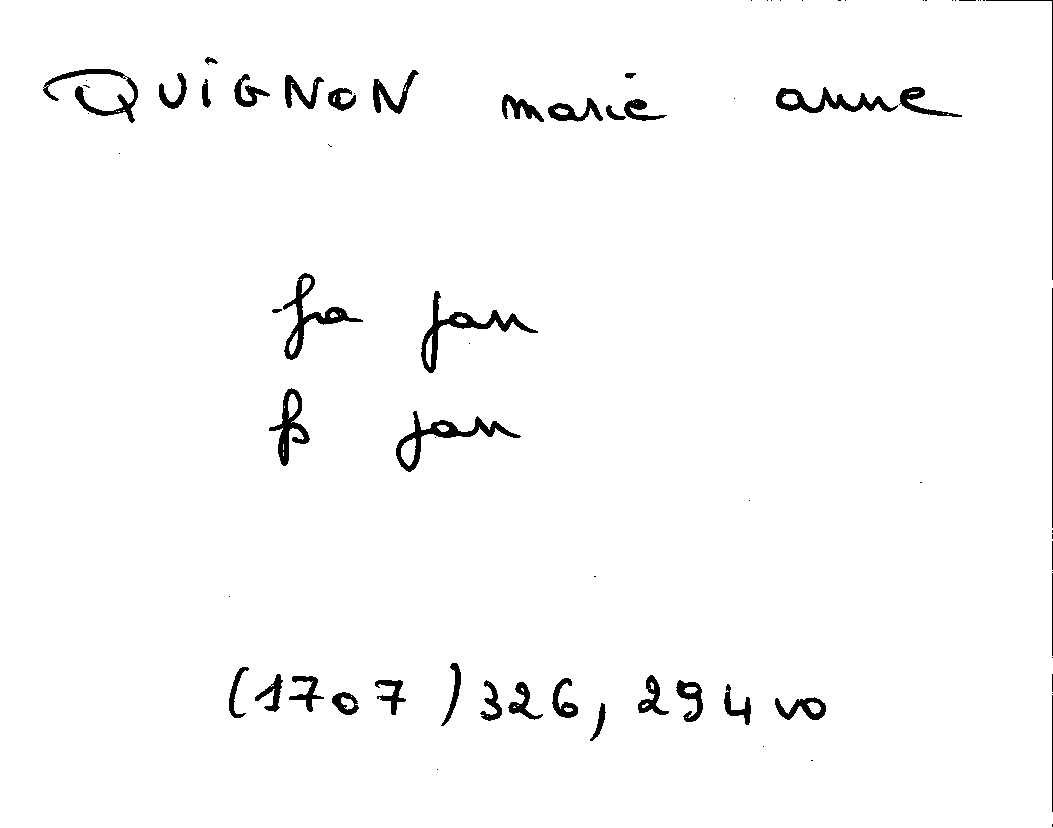 QUIGNON marie anne
fa jan
p jan
(1707) 326, 294 vo